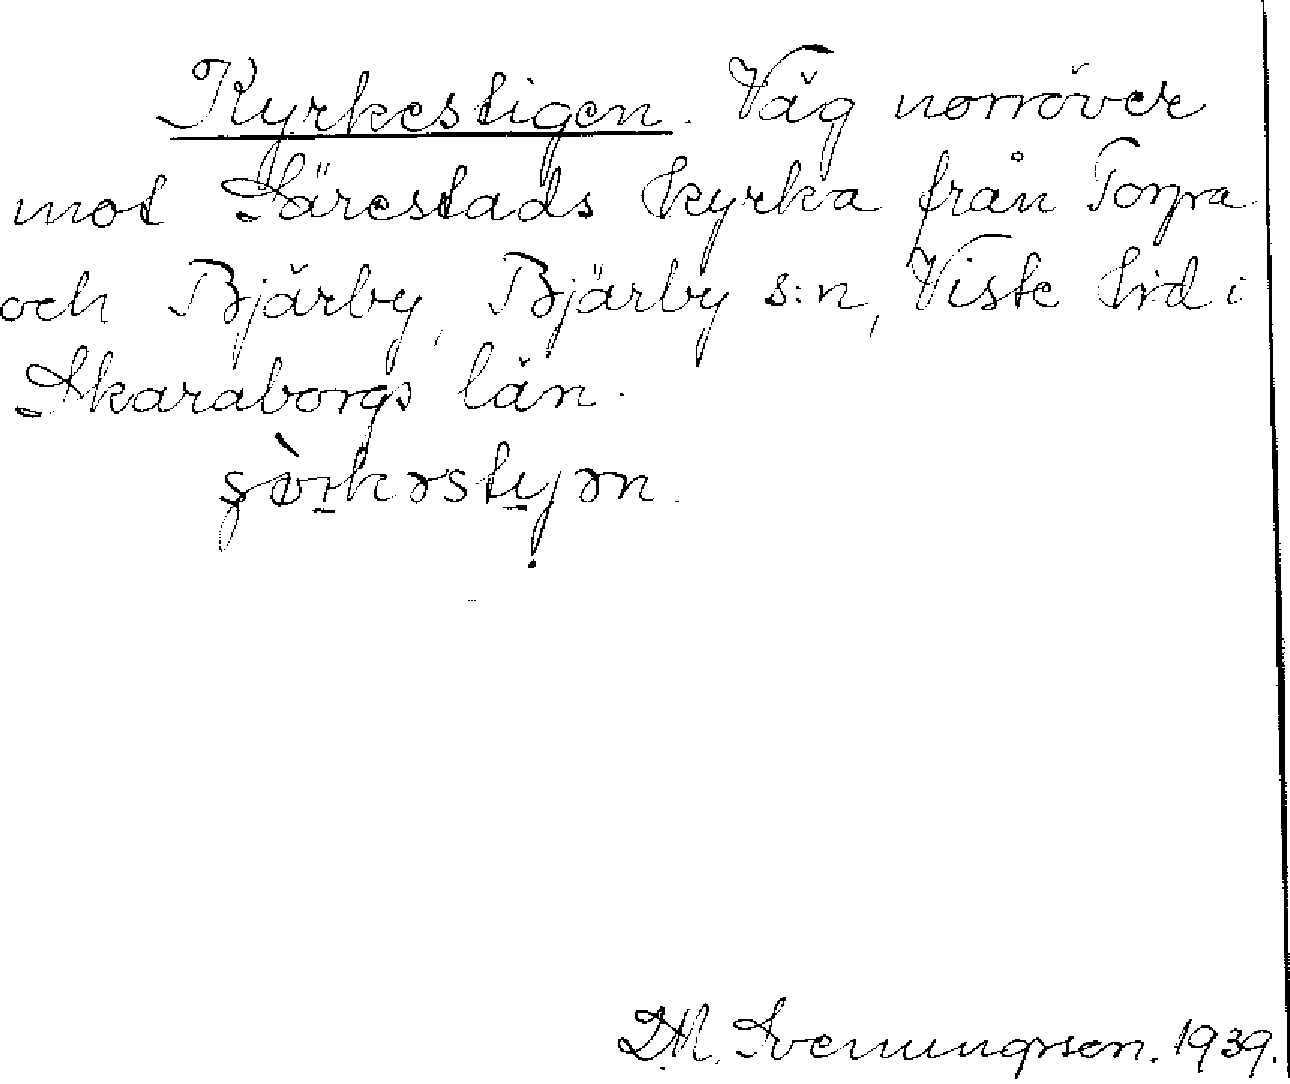 Kyrkestigen. Väg norröver
mot Särestads kyrka från Torpa
och Bjärby, Bjärby s:n, Viste hrd i
Skaraborgs län.
Svenungsson. 1939.